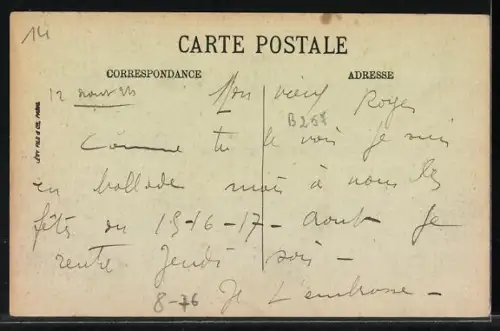 14
CARTE POSTALE
CORRESPONDANCE
ADRESSE
12 aout
Mon vieux Roger
B258
Comme tu le vois je suis
en ballade mais à nous les
fêtes du 15-16-17- aout Je
rentre Jeudi soir -
8-76
Je t'embrasse -
LÉVY FILS & CIE, PARIS